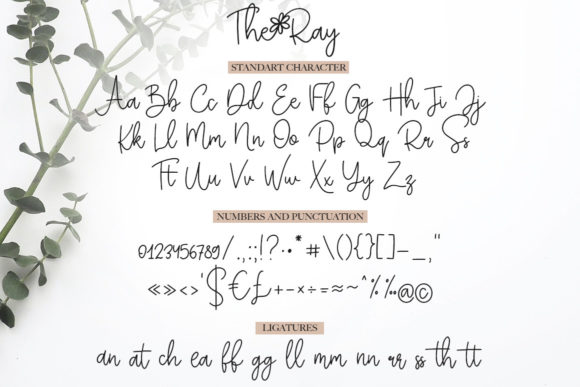 The Ray
STANDART CHARACTER
Aa Bb Cc Dd Ee Ff Gg Hh Ii Jj
Kk Ll Mm Nn Oo Pp Qq Rr Ss
Tt Uu Vv Ww Xx Yy Zz
NUMBERS AND PUNCTUATION
0123456789/.,:;!?·•*#\(){}[]-_,"
«»<>'$€£+-×÷=≈~^%‰@©
LIGATURES
an at ch ea ff gg ll mm nn rr ss th tt